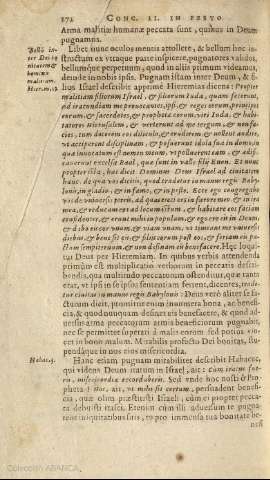 172 CONC. II. IN FESTO
Arma malitiæ humanæ peccata sunt, quibus in Deum
pugnamus.
Libet nunc oculos mentis attollere, & bellum hoc in-
structum ex utraque parte inspicere, pugnatores validos,
bellumque perpetuum, quod in aliis primum videamus,
deinde in nobis ipsis. Pugnam istam inter Deum, & fi-
lios Israel describit apprimè Hieremias dicens: Propter
malitiam filiorum Israel, & filiorum Iuda, quam fecerunt,
ad iracundiam me provocantes, ipsi, & reges eorum, principes
eorum, & sacerdotes, & prophetæ eorum, viri Iuda, & habi-
tatores Hierusalem, & verterunt ad me tergum, & non fa-
cies, cum docerem eos diluculo, & erudirem, & nollent audire,
ut acciperent disciplinam, & posuerunt idola sua in domo, in
qua invocatum est nomen meum, ut polluerent eam, & ædifi-
caverunt excelsa Baal, quæ sunt in valle filii Ennon. Et nunc
propter ista, hæc dicit Dominus Deus Israel ad civitatem
hanc, de qua vos dicitis, quod tradetur in manus regis Baby-
lonis, in gladio, & in fame, & in peste. Ecce ego congregabo
eos de universis terris, ad quas eieci eos in furore meo, & in ira
mea, & reducam eos ad locum istum, & habitare eos faciam
confidenter, & erunt mihi in populum, & ego ero eis in Deum,
& dabo eis cor unum, & viam unam, ut timeant me universis
diebus, & bene sit eis, & filiis eorum post eos, & feriam eis pa-
ctum sempiternum, & non desinam eis benefacere. Hęc loqui-
tur Deus per Hieremiam. In quibus verbis attendenda
primùm est multiplicatio verborum in peccatis descri-
bendis, qua multitudo peccatorum ostenditur, quæ tanta
erat, ut ipsi in se ipsos sententiam ferrent, dicentes, trade-
tur civitas in manus regis Babylonis: Deus verò aliter se fa-
cturum dicit, promittit enim innumera bona, ac benefi-
cia, & quod nunquam desinet eis benefacere, & quod ad-
versus arma peccatorum armis beneficiorum pugnabit,
nec se permittet superari à malis eorum sed potius vin-
cet in bono malum. Mirabilis profectò Dei bonitas, stu-
pendáque in nos eius misericordia.
Hanc etiam pugnam mirabiliter describit Habacuc,
qui videns Deum iratum in Israel, ait: cum iratus fue-
ris, misericordiæ recordaberis. Sed unde hoc nosti ô Pro-
pheta? Hoc, ait, ut mihi sit certum, persuadent benefi-
cia, quæ olim præstitisti Israeli, cùm ei propter pecca-
ta debuisti irasci. Etenim cùm illi adversum te pugna-
rent iniquitatibus suis, tu pro immensa tua bonitate be-
nefi
Bellũ in-
ter Dei
bonitatem &
hominis
malitiam.
Hierem. 32
Habac. 3.
Colección ABANCA